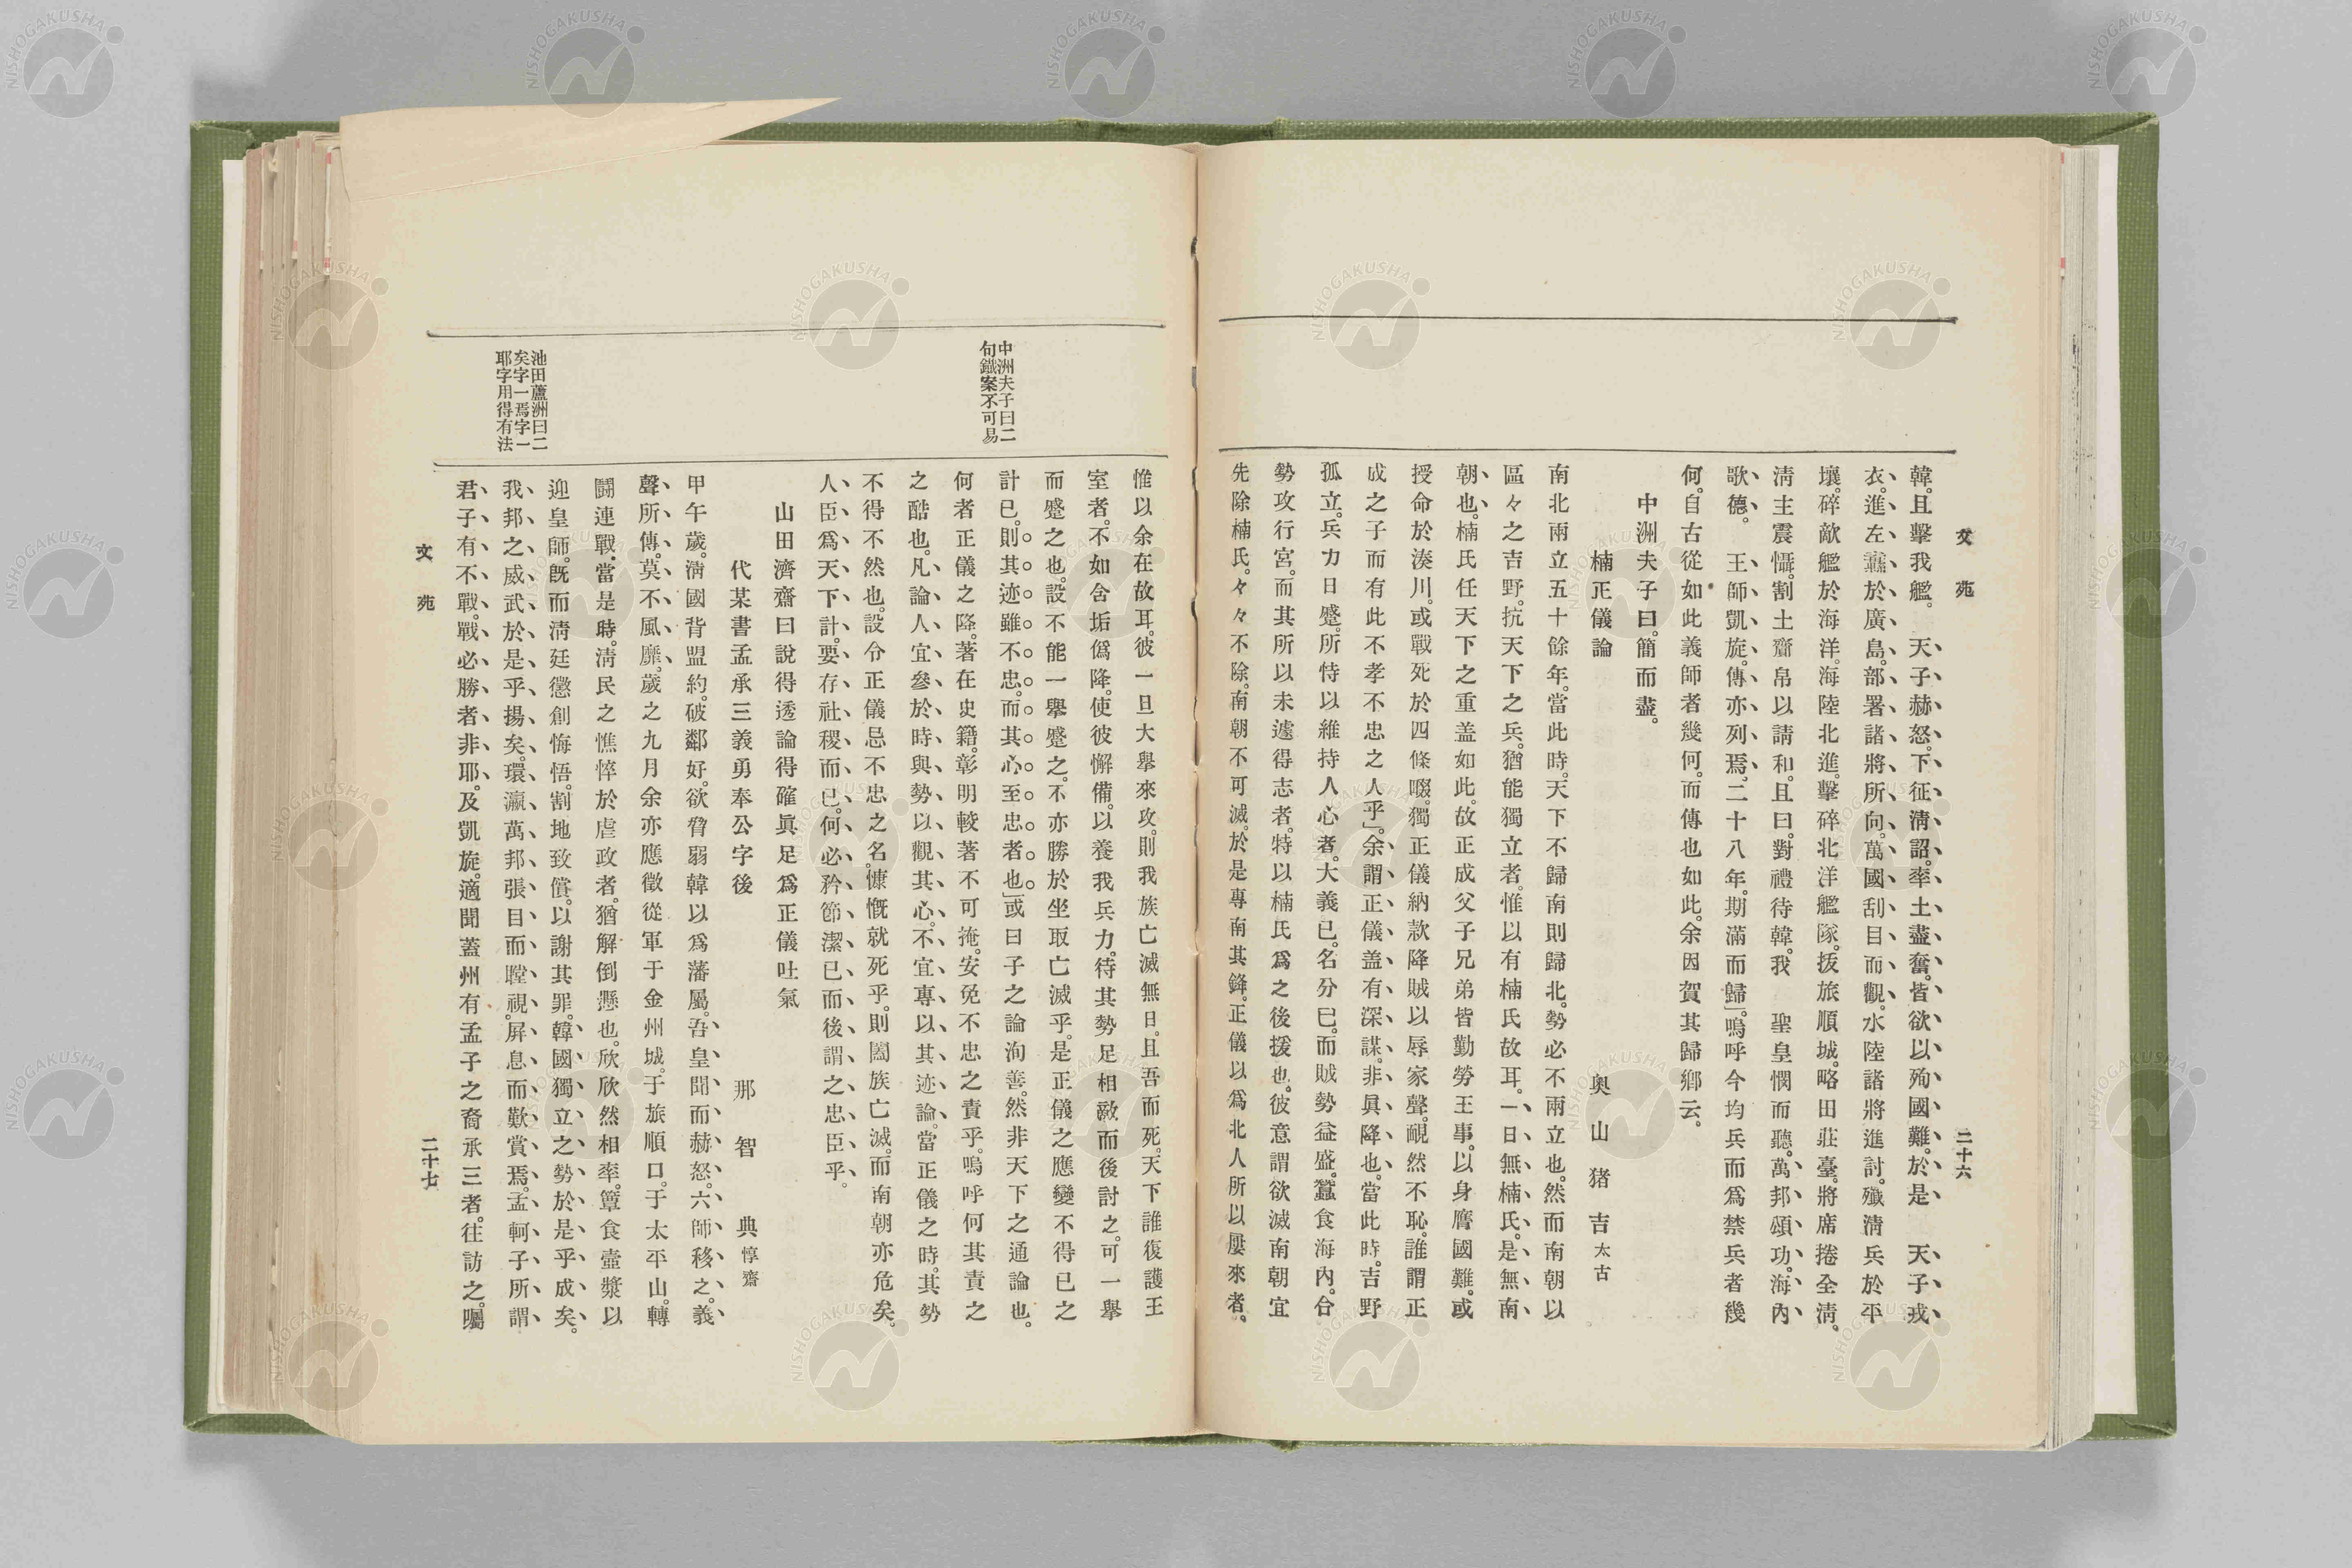 文苑
二十六
韓。且擊我艦。　天子赫怒。下征淸詔。率土盡奮。皆欲以殉國難。於是　天子戎
衣。進左纛於廣島。部署諸將所向。萬國刮目而觀。水陸諸將進討。殲淸兵於平
壤。碎敵艦於海洋。海陸北進。擊碎北洋艦隊。拔旅順城。略田莊臺。將席捲全淸。
淸主震懾。割土齎帛以請和。且曰。對禮待韓。我　聖皇憫而聽。萬邦頌功。海內
歌德。　王師凱旋。傳亦列焉。二十八年。期滿而歸」。嗚呼今均兵而爲禁兵者幾
何。自古從如此義師者幾何。而傳也如此。余因賀其歸鄕云。
中洲夫子曰。簡而盡。
楠正儀論　奧山猪吉太古
南北兩立五十餘年。當此時。天下不歸南則歸北。勢必不兩立也。然而南朝以
區々之吉野。抗天下之兵。猶能獨立者。惟以有楠氏故耳。一日無楠氏。是無南
朝也。楠氏任天下之重盖如此。故正成父子兄弟皆勤勞王事。以身膺國難。或
授命於湊川。或戰死於四條畷。獨正儀納款降賊以辱家聲。靦然不恥。誰謂正
成之子而有此不孝不忠之人乎」。余謂正儀盖有深謀。非眞降也。當此時。吉野
孤立。兵力日蹙。所恃以維持人心者。大義已。名分已。而賊勢益盛。蠶食海內。合
勢攻行宮。而其所以未遽得志者。特以楠氏爲之後援也。彼意謂欲滅南朝宜
先除楠氏。々々不除。南朝不可滅。於是專南其鋒。正儀以爲北人所以屢來者。
中洲夫子曰二
句鐵案不可易
池田蘆洲曰二
矣字一焉字一
耶字用得有法
惟以余在故耳。彼一旦大擧來攻。則我族亡滅無日。且吾而死。天下誰復護王
室者。不如含垢僞降。使彼懈備。以養我兵力。待其勢足相敵而後討之。可一擧
而蹙之也。設不能一擧蹙之。不亦勝於坐取亡滅乎。是正儀之應變不得已之
計已。則其迹雖不忠。而其心至忠者也」或曰子之論洵善。然非天下之通論也。
何者正儀之降。著在史籍。彰明較著不可掩。安免不忠之責乎。嗚呼何其責之
之酷也。凡論人宜參於時與勢以觀其心。不宜專以其迹論。當正儀之時。其勢
不得不然也。設令正儀忌不忠之名。慷慨就死乎。則闔族亡滅。而南朝亦危矣。
人臣爲天下計。要存社稷而已。何必矜節潔已而後謂之忠臣乎。
山田濟齋曰說得透論得確眞足爲正儀吐氣
代某書孟承三義勇奉公字後　那智典惇齋
甲午歲。淸國背盟約。破鄰好。欲脅弱韓以爲藩屬。吾皇聞而赫怒。六師移之。義
聲所傳。莫不風靡。歲之九月余亦應徵從軍于金州城。于旅順口。于太平山。轉
鬪連戰。當是時。淸民之憔悴於虐政者。猶解倒懸也。欣欣然相率。簞食壺漿以
迎皇師。旣而淸廷懲創悔悟。割地致償。以謝其罪。韓國獨立之勢於是乎成矣。
我邦之威武於是乎揚矣。環瀛萬邦張目而瞠視。屏息而歎賞焉。孟軻子所謂
君子有不戰。戰必勝者非耶。及凱旋。適聞蓋州有孟子之裔承三者。往訪之。囑
文苑
二十七